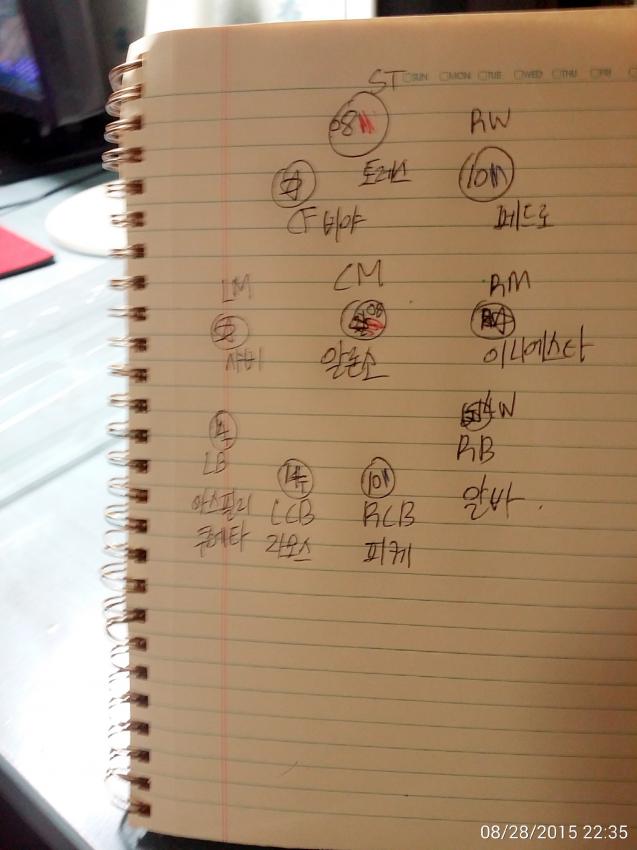 SUN MON TUE WED THU FRI
ST
08
RW
토레스
10
CF 비야
페드로
LM
CM
RM
08
샤비
알론소
이니에스타
W
LB
RB
14
10
아스필리
LCB
RCB
알바
쿠에타
라모스
피케
08/28/2015 22:35